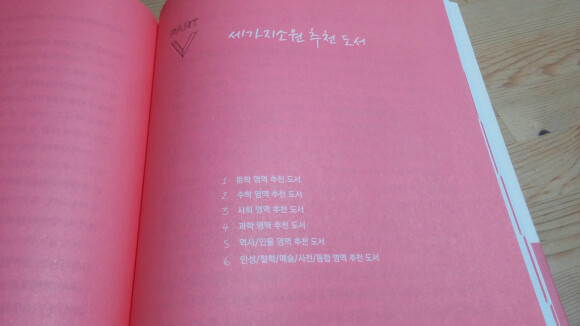 세가지소원 추천 도서
1 문학 영역 추천 도서
2 수학 영역 추천 도서
3 사회 영역 추천 도서
4 과학 영역 추천 도서
5 역사/인물 영역 추천 도서
6 인성/철학/예술/사전/통합 영역 추천 도서